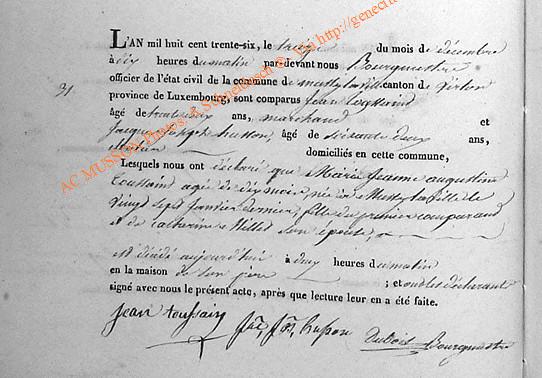 L'AN mil huit cent trente-six, le treize du mois de décembre
à dix heures du matin par-devant nous Bourgmestre
officier de l'état civil de la commune de Mussy la ville canton de Virton
31
province de Luxembourg, sont comparus Jean Toussaint
âgé de ans, marchand et
Jacques Joseph husson, âgé de soixante deux ans,
domiciliés en cette commune,
Lesquels nous ont déclaré que Marie Jeanne augustine
Toussaint agée de dix mois, née à Mussy la ville le
Vingt sept Janvier dernier, fille du premier comparant
et de catherine son épouse,
est décédé aujourd'hui à deux heures du matin
en la maison de son père ; et ont les déclarants
signé avec nous le présent acte, après que lecture leur en a été faite.
jean toussain Jac, Jos, husson Dubois Bourgmestre
AC MUSSON Photos: A. Schneidesch © En http://genect